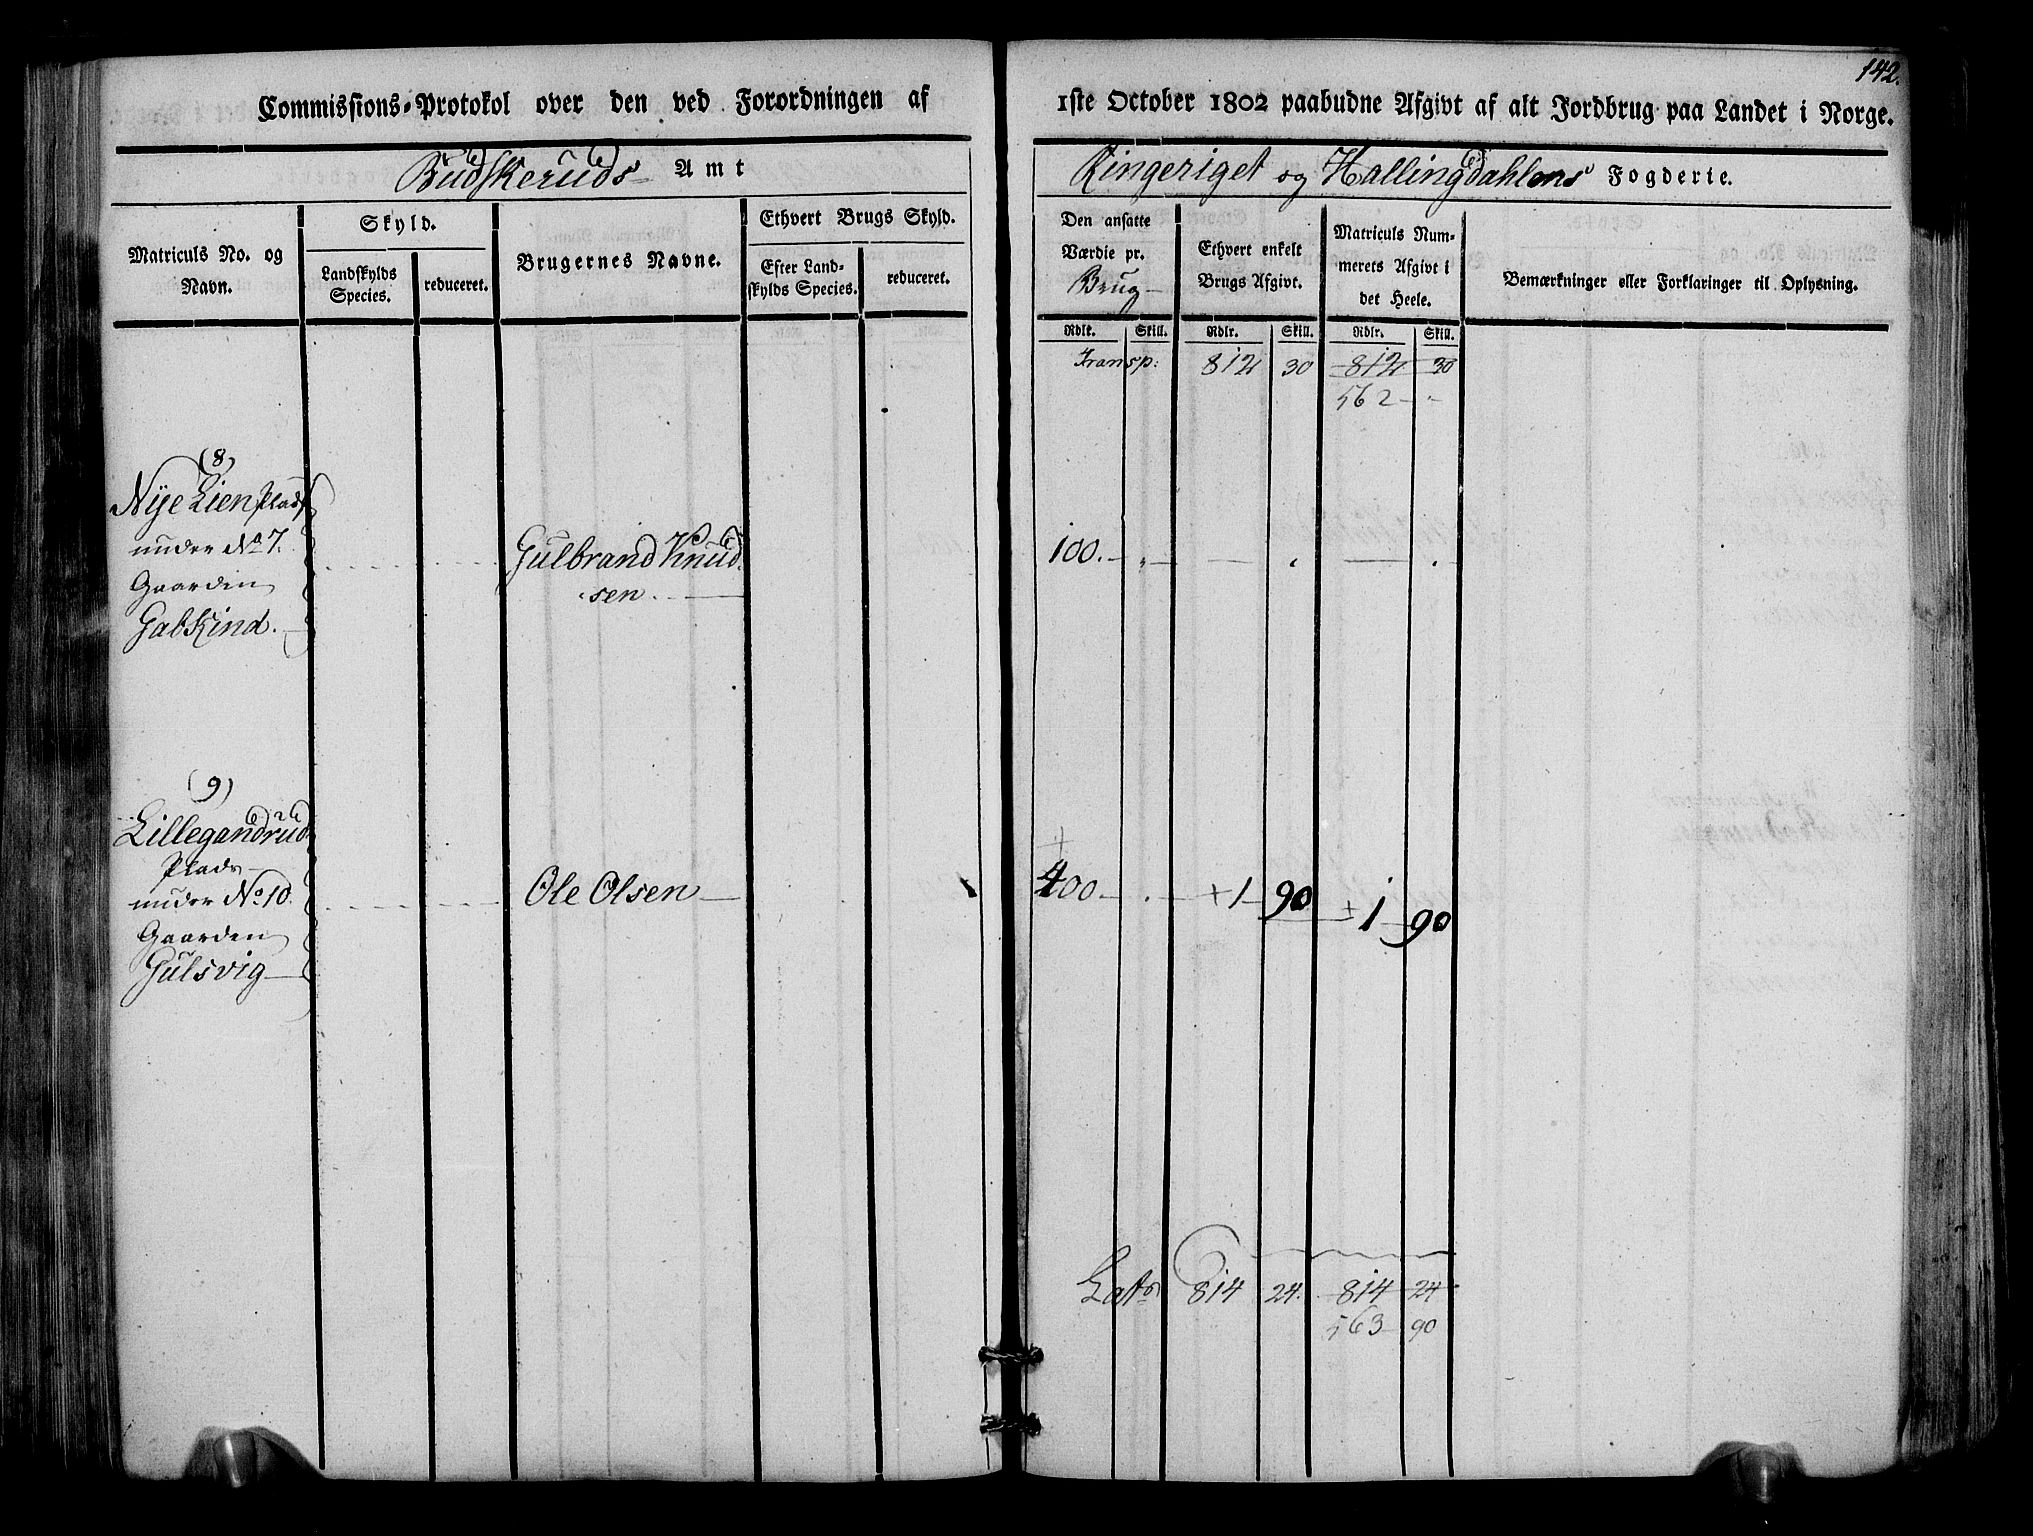 142.
Commissions-Protokol over den ved Forordningen af 1ste October 1802 paabudne Afgivt af alt Jordbrug paa Landet i Norge.
Budskeruds Amt
Ringeriget og Hallingdahlens Fogderie.
Matriculs No. og Navn.
Skyld.
Landskylds Species.
reduceret.
Brugernes Navne.
Ethvert Brugs Skyld.
Efter Landskylds Species.
reduceret.
Den ansatte Værdie pr. Brug
Ethvert enkelt Brugs Afgivt.
Matriculs Nummerets Afgivt i det Heele.
Bemærkninger eller Forklaringer til Oplysning.
Rdlr. Skill. Rdlr. Skill. Rdlr. Skill.
Transp: 812 30 812 30
562 - -
(8)
Nye Lien Plads
under No 7.
Gaarden
Galskind.
Gulbrand Knud-
sen.
100. - „ - „ - .
(9)
Lillegandrud
Plads
under No 10.
Gaarden
Gulsvig
Ole Olsen
+
400 - . + 1 90 + 1 90
Lats 814 24. 814 24
563 90